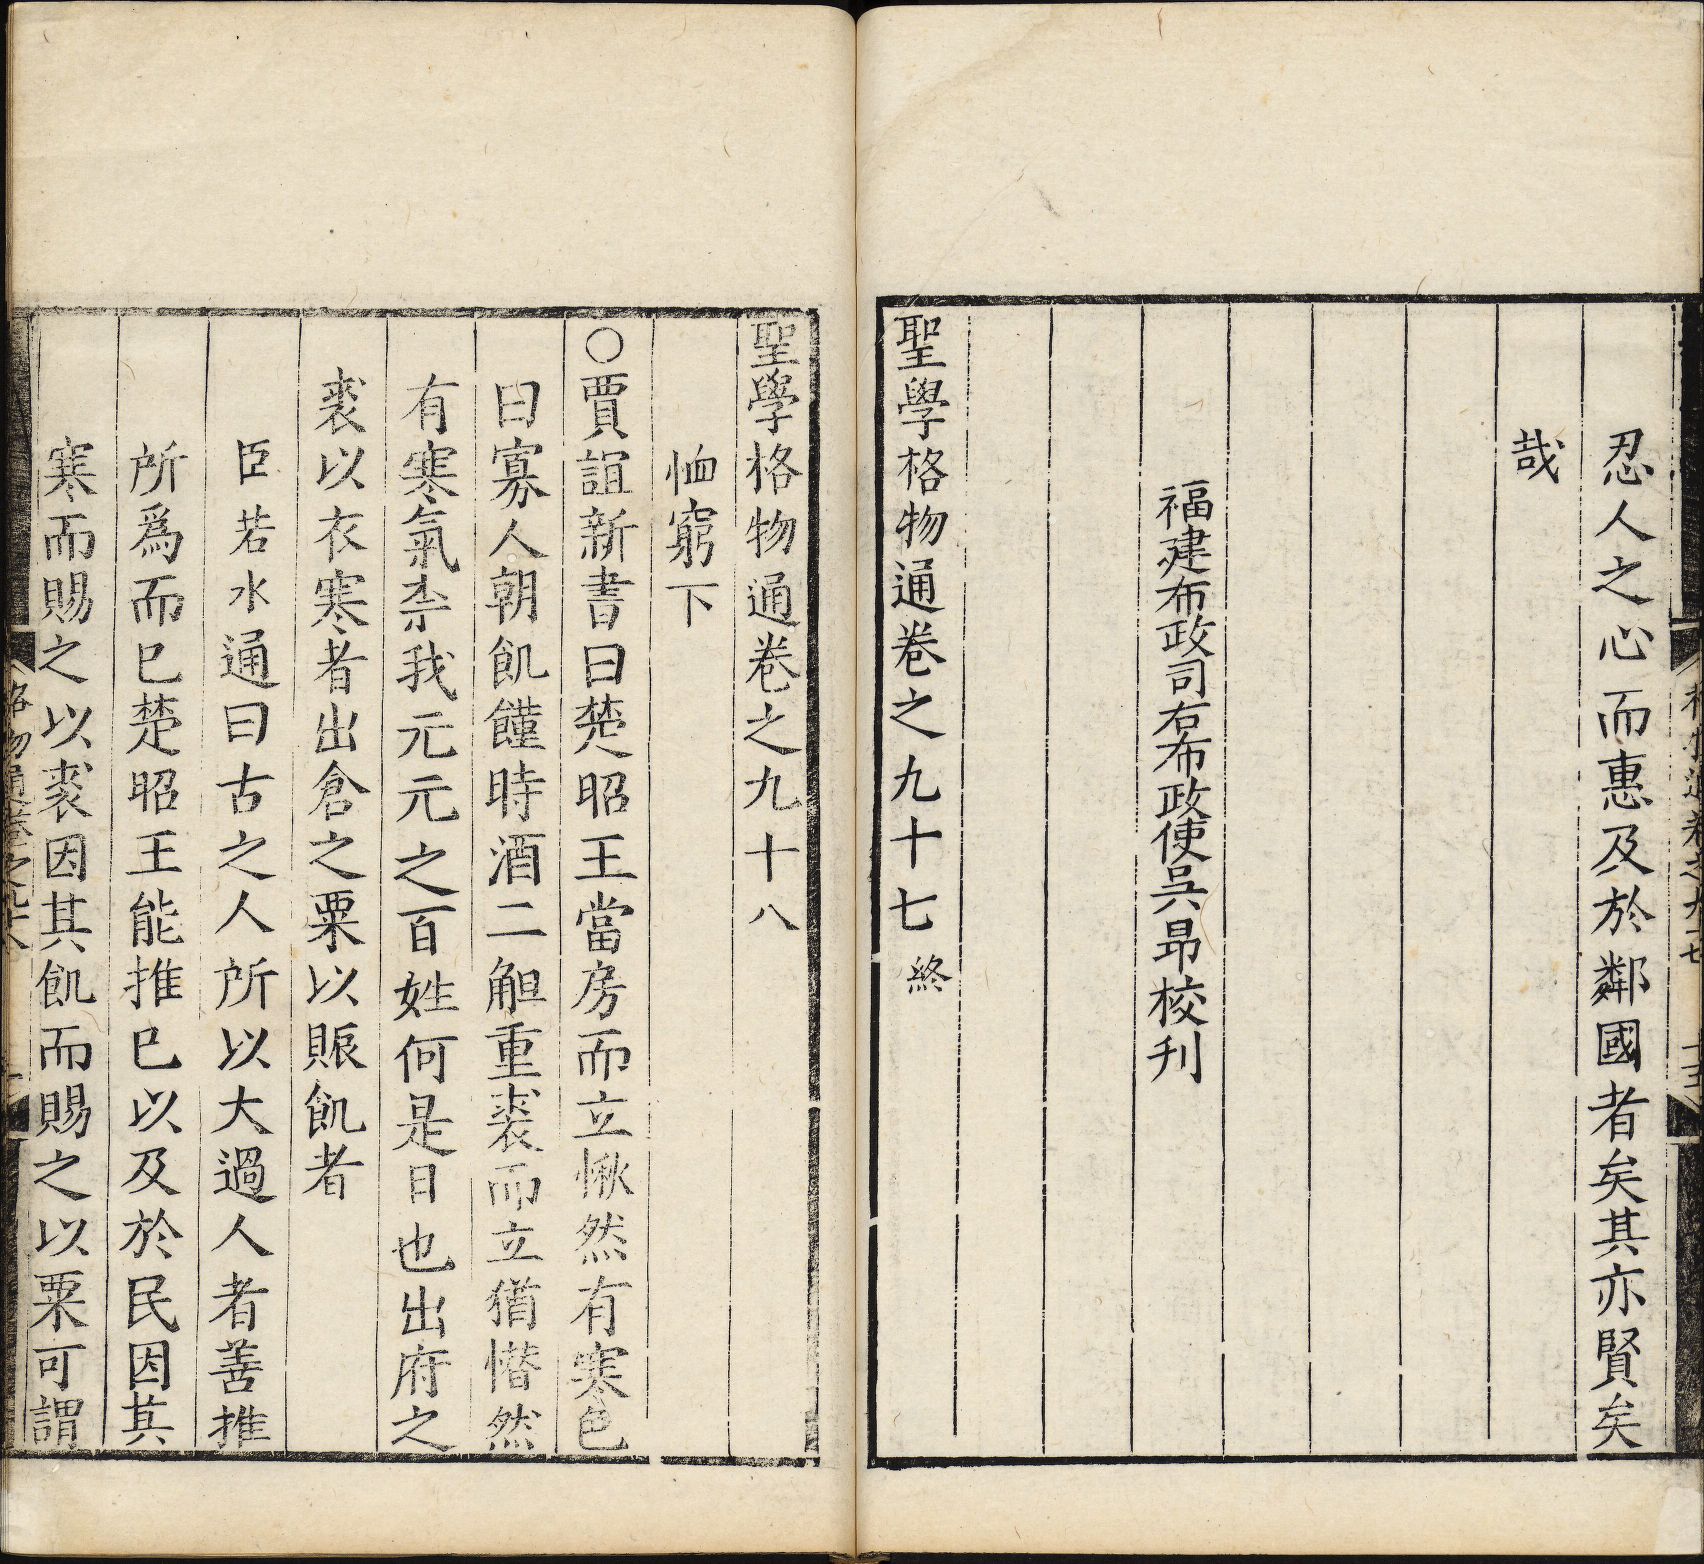 忍人之心而惠及於鄰國者矣其亦賢矣
哉
福建布政司右布政使吳昂校刊
聖學格物通卷之九十七 終
聖學格物通卷之九十八
恤窮下
○賈誼新書曰楚昭王當房而立愀然有寒色
曰寡人朝飢饉時酒二觛重裘而立猶憯然
有寒氣柰我元元之百姓何是日也出府之
裘以衣寒者出倉之粟以賑飢者
臣若水通曰古之人所以大過人者善推
所爲而已楚昭王能推已以及於民因其
寒而賜之以裘因其飢而賜之以粟可謂